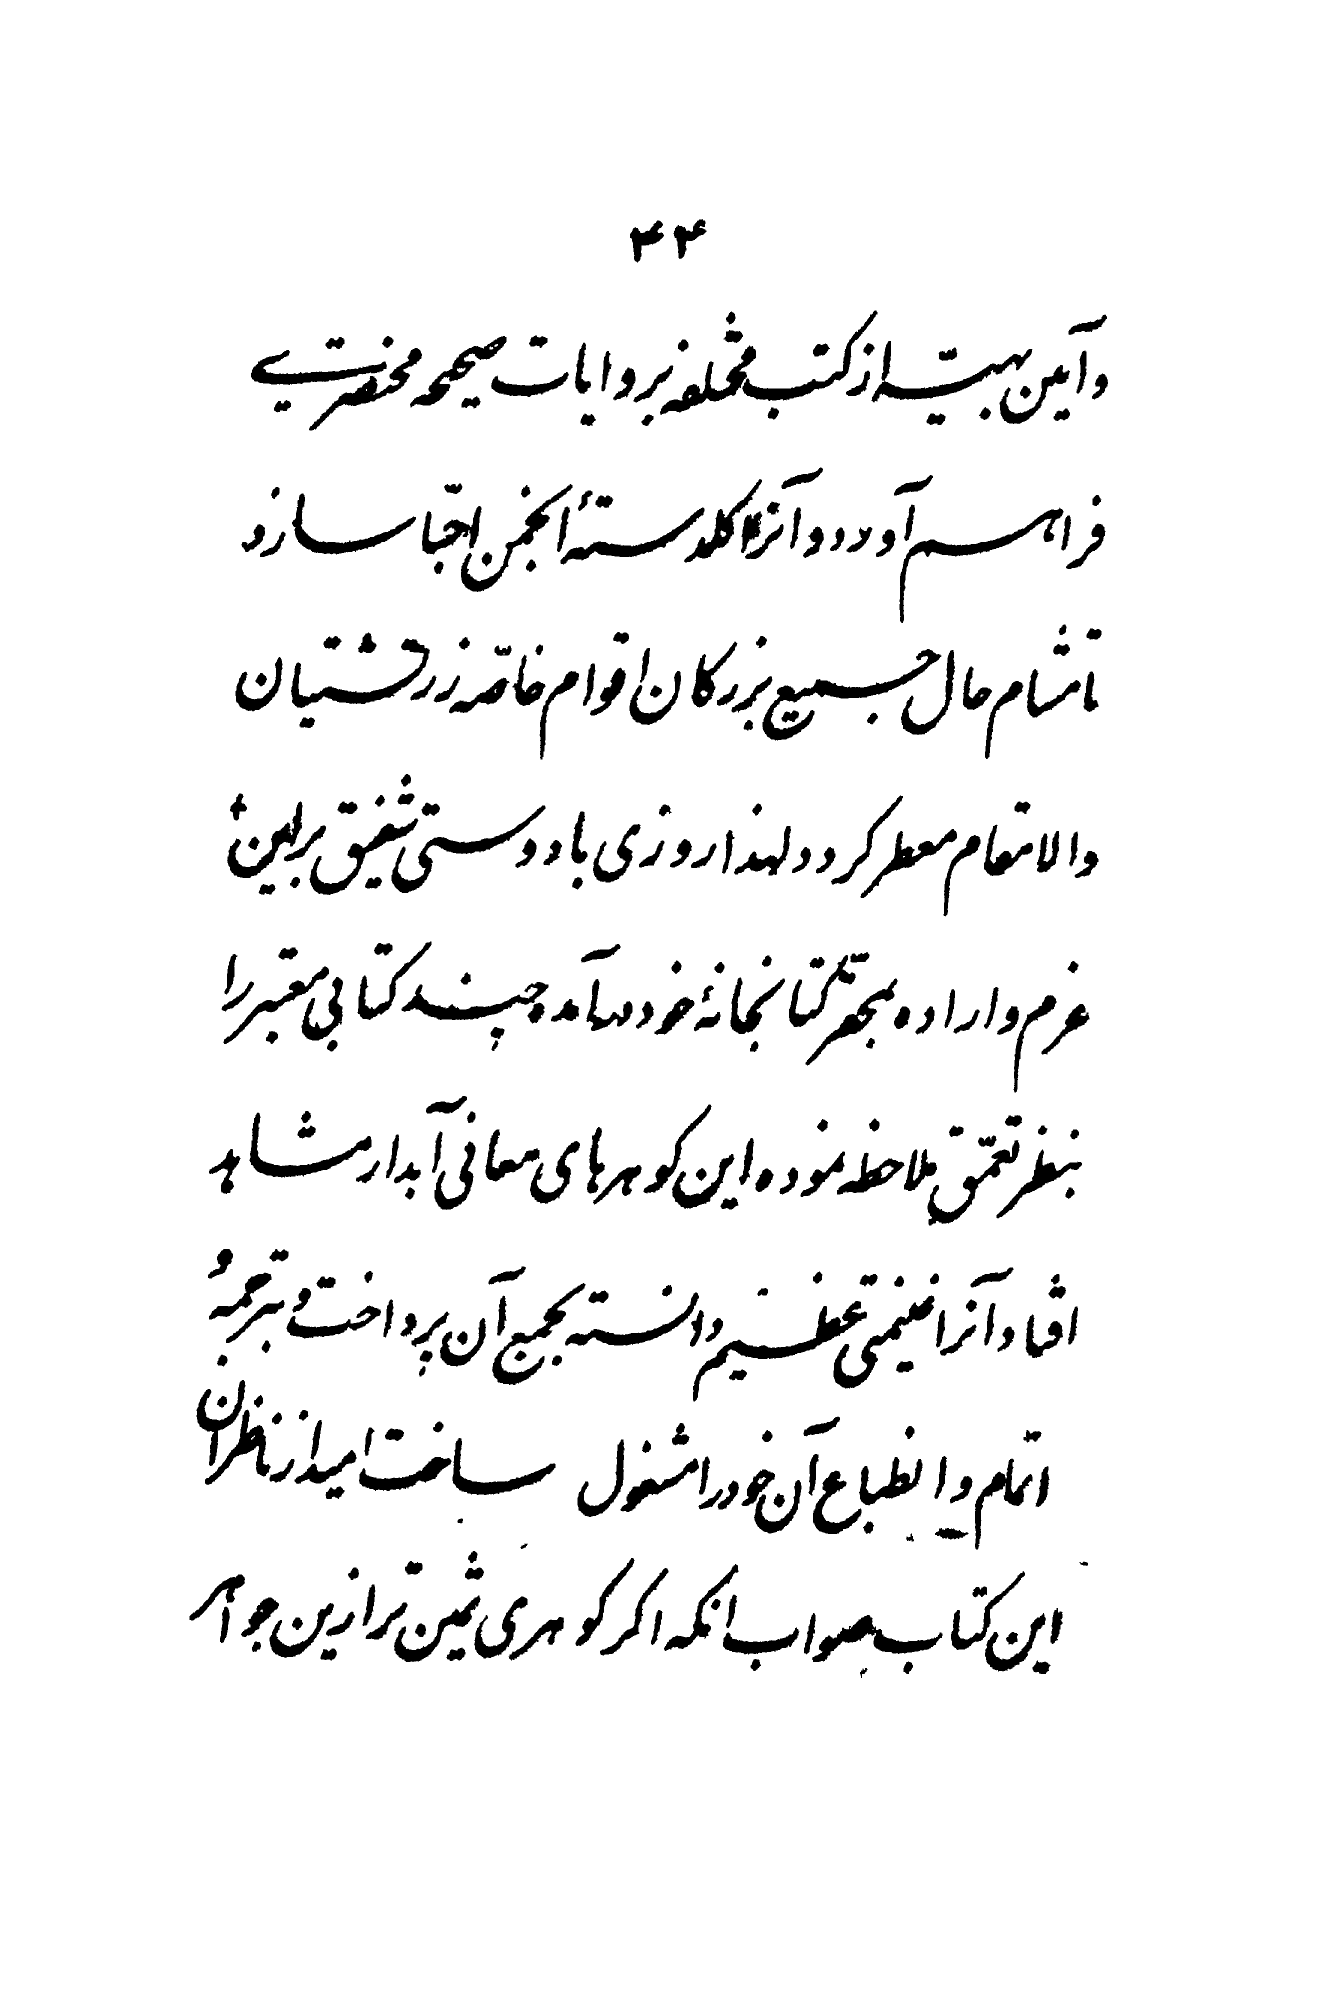 ۴۴
و آیین بهیّه از کتب مختلفه بروایات صحیحه مختصرے
فراهم آورد و آنرا کلدستهٔ انجمن احبّا سازد
تا مشام حال جمیع بزرکان اقوام خاصّه زرتشتیان
والامقام معطر کردد لهذا روزی با دوستی شفیق براین
عزم و اراده بمحقّر کتابخانهٔ خود درآمده چند کتابی معتبر را
بنظر تعمّق ملاحظه نموده این کوهرهای معانی آبدار مشاهد
افتاد و آنرا غنیمتی عظیم دانسته بجمع آن پرداخت و بترجمهٔ و
اتمام و انطباع آن خود را مشغول ساخت امید از ناظران
این کتاب بصواب انکه اکر کوهری ثمین تر ازین جواهر